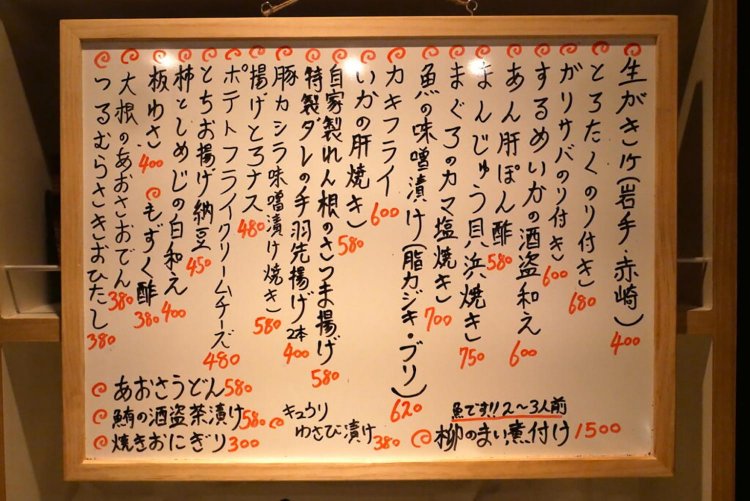 生がき1ケ(岩手・赤崎) 400
とろたくのり付き 680
ガリサバのり付き 600
するめいかの酒盗和え 600
あん肝ぽん酢 580
まんじゅう貝浜焼き 750
まぐろのカマ塩焼き 700
魚の味噌漬け(脂カジキ・ブリ) 620
カキフライ 600
いかの肝焼き 580
自家製れん根のさつま揚げ 580
特製ダレの手羽先揚げ2本 400
豚カシラ味噌漬け焼き 580
揚げとろナス 480
ポテトフライクリームチーズ 480
とちお揚げ納豆 450
柿としめじの白和え 400
板わさ 400
もずく酢 380
大根のあおさおでん 380
つるむらさきおひたし 380
あおさうどん 580
鮪の酒盗茶漬け 580
焼きおにぎり 300
キュウリ
わさび漬け 380
魚です!!2〜3人前
柳のまい煮付け 1500